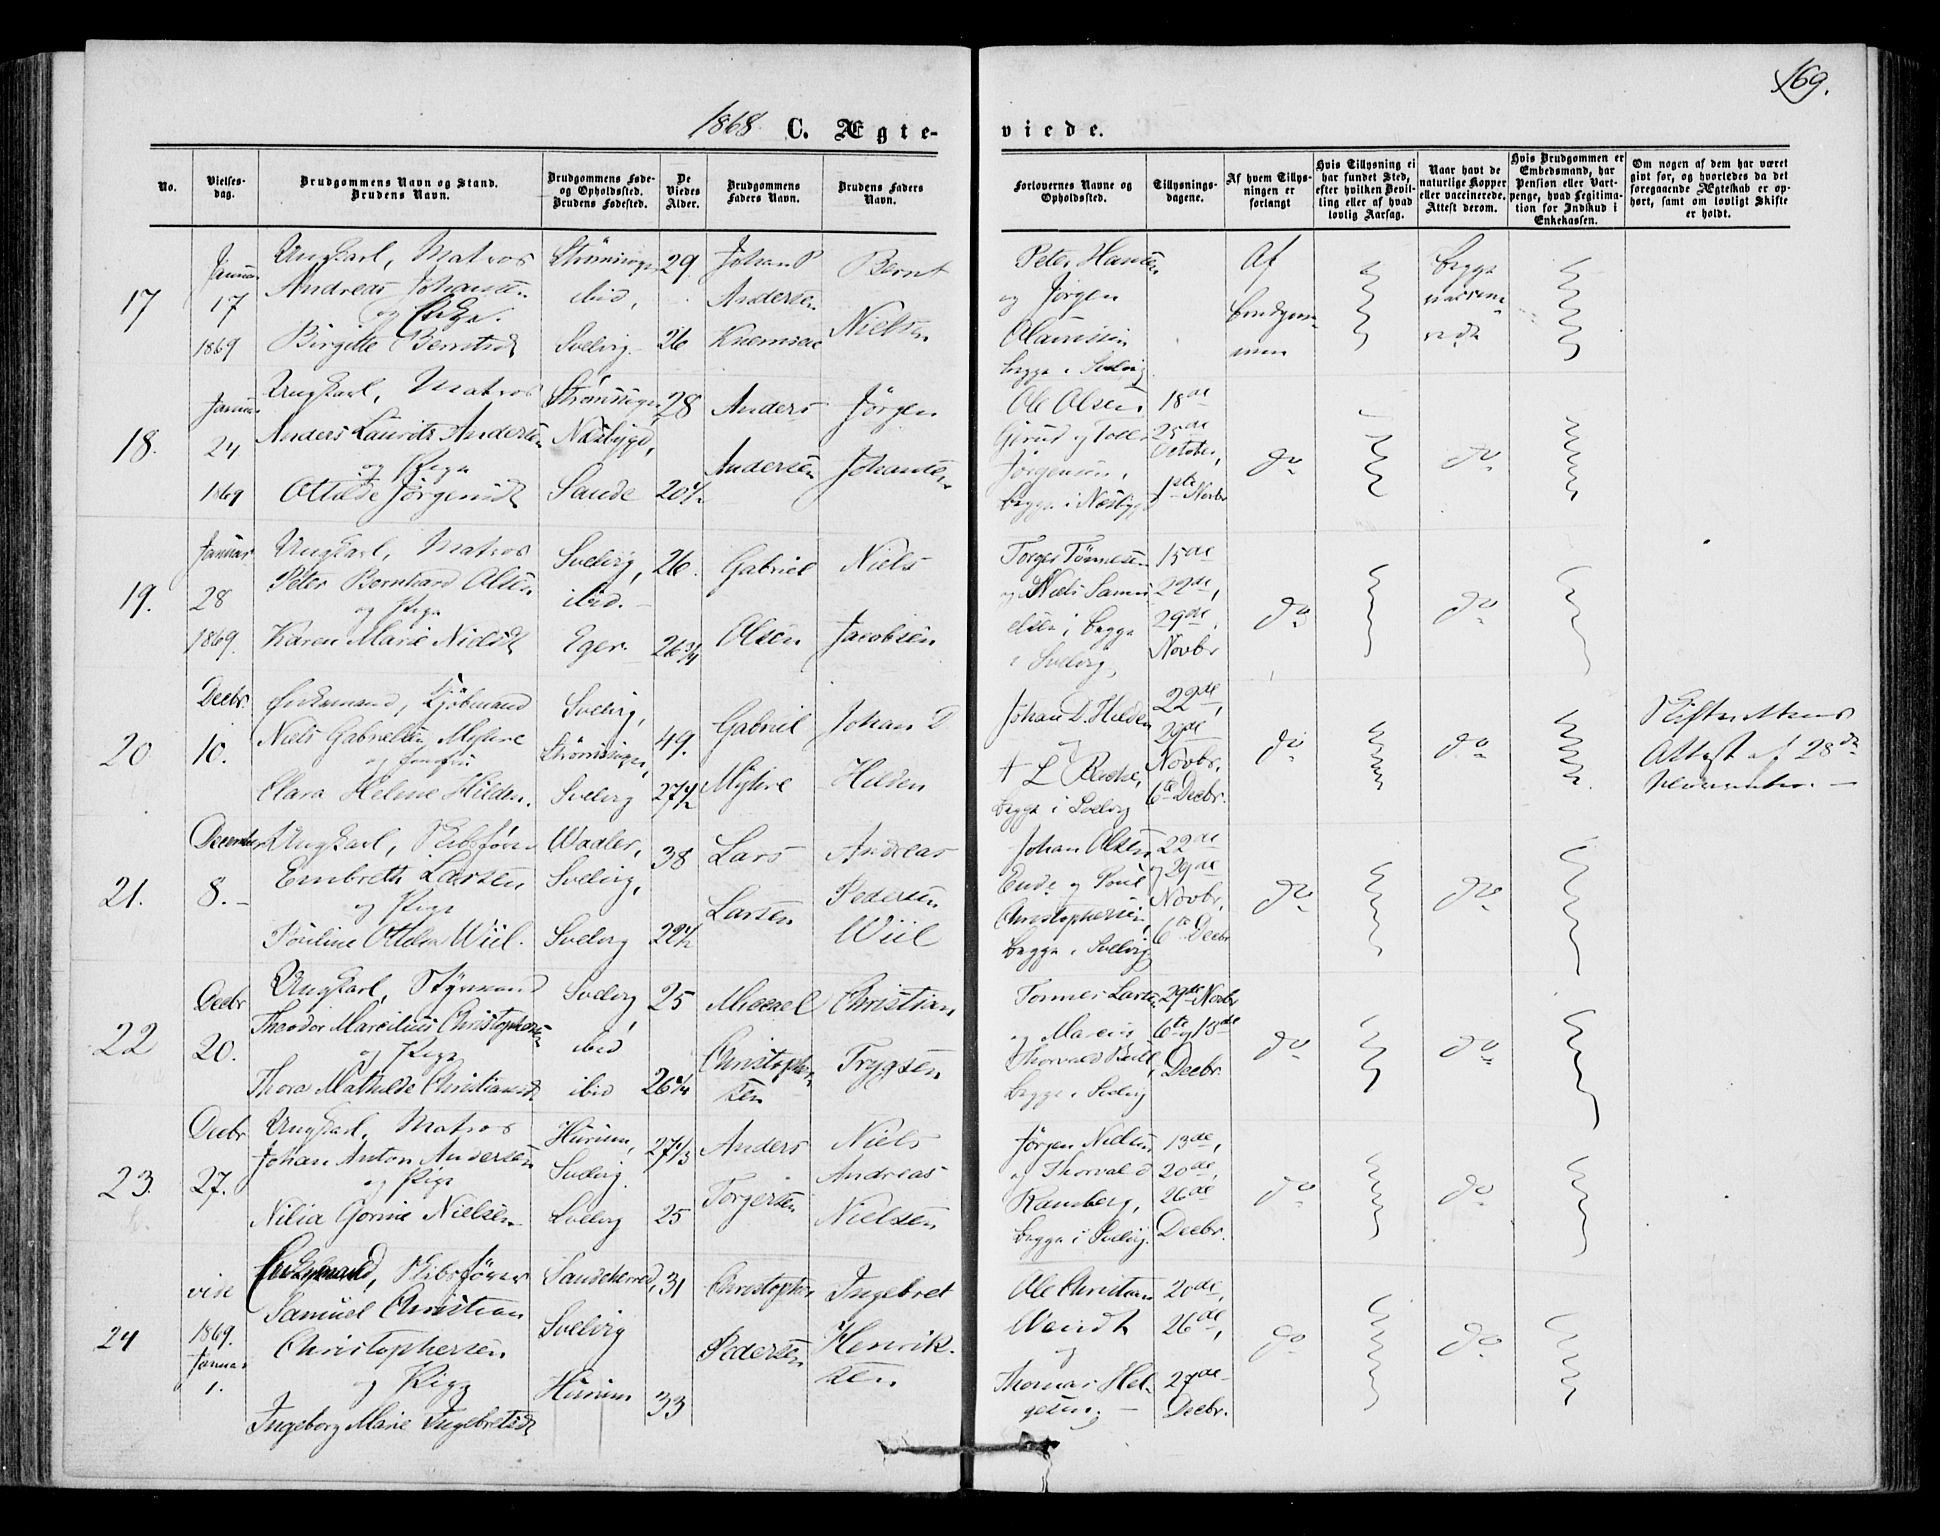 169.
1868. C. Ægte-
viede.
No.
Vielses-
dag.
Brudgommens Navn og Stand.
Brudens Navn.
Brudgommens Føde-
og Opholdssted.
Brudens Fødested.
De
Viedes
Alder.
Brudgommens
Faders Navn.
Brudens Faders
Navn.
Forlovernes Navne og
Opholdssted.
Tillysnings-
dagene.
Af hvem Tillys-
ningen er
forlangt
Hvis Tillysning ei
har fundet Sted,
efter hvilken Bevil-
ling eller af hvad
lovlig Aarsag.
Naar havt de
naturlige Kopper
eller vaccinerede.
Attest derom.
Hvis Brudgommen er
Embedsmand, har
Pension eller Vart-
penge, hvad Legitima-
tion for Indskud i
Enkekassen.
Om nogen af dem har været
gift før, og hvorledes da det
foregaaende Ægteskab er op-
hørt, samt om lovligt Skifte
er holdt.
17
Januar
17
1869
Ungkarl, Matros
Andreas Johansen
og Enke
Birgitte Berntsdt
ibid.
Svelvig
29
26
Johan P
Andersen
Bernt
Nielsen
Peter Hansen
og Jørgen
begge i Svelvig
Af
Brudgom-
men
begge
18.
Januar
24
1869
Ungkarl, Matros
Anders Laurits Andersen
og Pige
Othilde Jørgensdt
Næsbygd,
Sande
28
20½
Anders
Andersen
Jørgen
Johansen
Ole Olsen
Jørgensen,
begge i Næsbygd
18de
25de
October,
1ste Novbr
do
do
19.
Januar
28
1869.
Ungkarl, Matros
Peter Bernhard Olsen
og Pige
Karen Marie Nielsdt
Svelvig,
ibid.
Eger
26.
26¾
Gabriel
Olsen
Niels
Jacobsen
Torger Tønnesen
og Niels Samu
elsen, begge
i Svelvig
15de
22de,
29de,
Novbr
do
do
20
Decbr.
10.
Enkemand, Kjøbmand
Niels Gabrielsen Myhre
og Jomfru
Clara Helene Hilden.
Svelvig,
Strømsogn,
Svelvig
49.
27½
Gabriel
Myhre
Johan D
Hilden
Johan D. Hilden
og
begge i Svelvig
22de,
29de
Novbr.
6te Decbr.
do
do
Skifterettens
Attest af 28de
November.
21.
December
8.
Ungkarl, Skibsfører
Embreth Larsen
og Pige
Pauline Wiil.
Waaler,
Svelvig,
Svelvig
38
22½
Lars
Larsen
Andreas
Pedersen
Wiil
Johan Olsen
Christophersen,
begge i Svelvig
22de
29de
Novbr.
6te Decbr
do
do
22
Decbr
20.
Ungkarl, Styrmand
Theodor Marcilius Christophersen
og Pige
Thora Mathilde Christiansdt
Svelvig
ibid
ibid
25
26¼
Christopher-
sen
Christian
Trygsen
Tønnes Larsen
og Marcus
Thorvald
begge i Svelvig
29de Novbr
6te og 13de
Decbr.
do
do
23.
Decbr
27.
Ungkarl, Matros
Johan Anton Andersen
og Pige
Nilia Gorine Nielsen
Hurum,
Svelvig.
Svelvig
27⅓
25
Anders
Torgersen
Niels
Andreas
Nielsen
Jørgen Nielsen
og Thorvald
Ramberg,
begge i Svelvig.
13de,
20de,
26de
Decbr.
do
do
24
vise
1869.
Januar
1.
Enkemand, Skibsfører
Samuel Christian
Christophersen
og Pige
Ingeborg Marie Ingebretsdt
Sandeherred,
Svelvig
Hurum
31
33
Christopher
Pedersen
Ingebret
Henrik-
sen.
Ole Christian
Wendt
og
Thomas Hel-
gesen.
20de,
26de,
27de
Decbr.
do
do